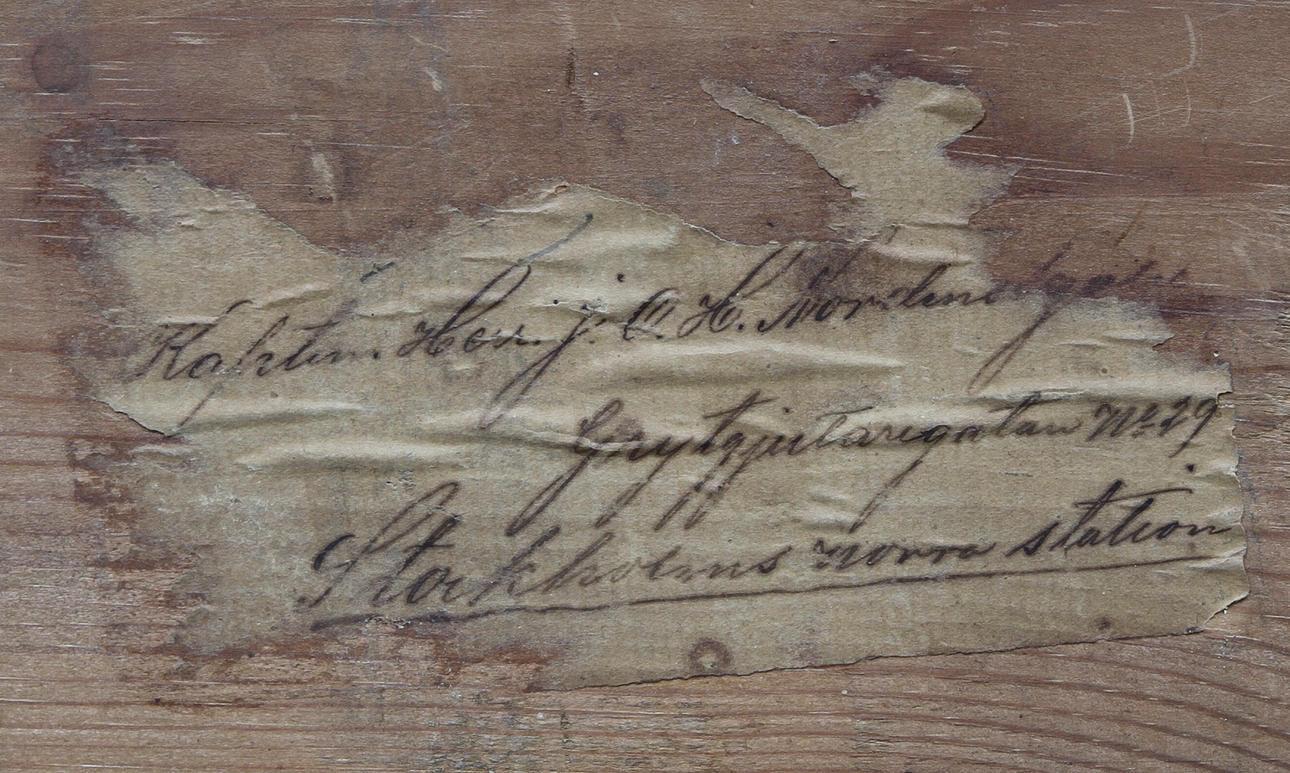 Kapten Herr J. A. H.
Grytgjutaregatan No 29
Stockholms norra station